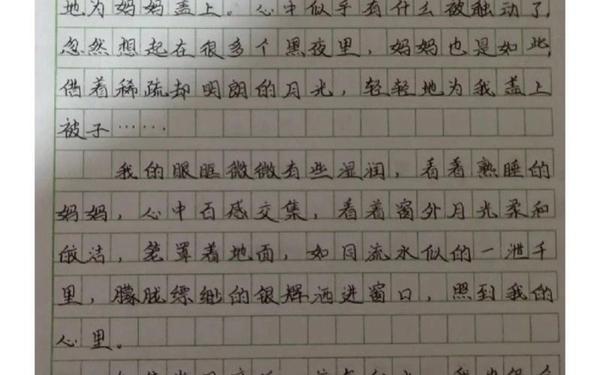 地为妈妈盖上。心中似乎有什么被触动了,
忽然想起在很多个黑夜里,妈妈也是如此,
借着稀疏却明朗的月光,轻轻地为我盖上
被子……
我的眼眶微微有些湿润,看着熟睡的
妈妈,心中百感交集,看着窗外月光柔和
皎洁,笼罩着地面,如同流水似的一泄千
里,朦胧缥缈的银辉洒进窗口,照到我的
心里。